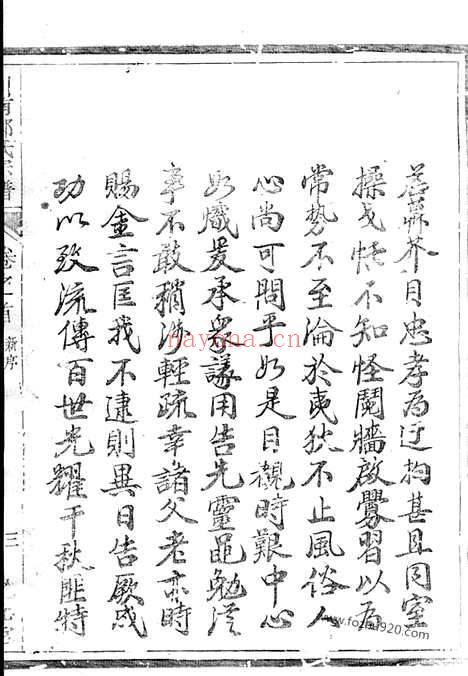 若草芥目忠孝為迂拘甚且同室
操戈恬不知怪鬩牆啟釁習以為
常勢不至淪於夷狄不止風俗人
心尚可問乎如是目觀時艱中心
如熾爰承眾議用告先靈黽勉從
事不敢稍涉輕疏幸諸父老亦時
賜金言匡我不逮則異日告厥成
功以致流傳百世光耀千秋匪特
氏宗譜
卷之首
新序
三
nayona.cn
www.fozhu920.com